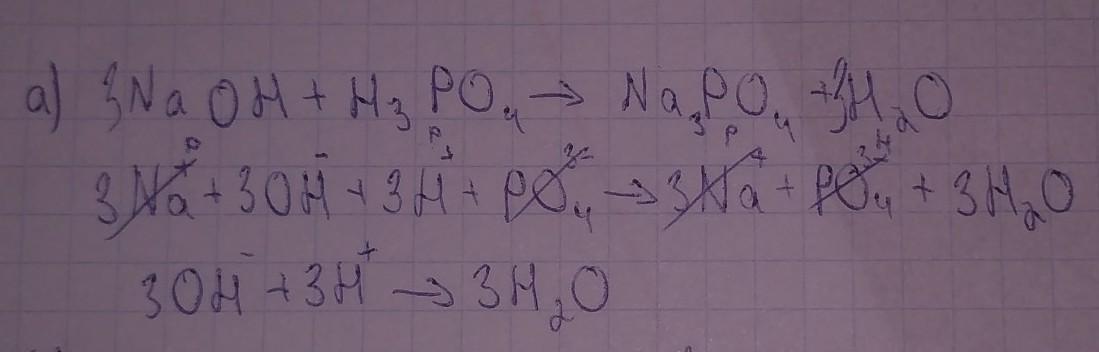 а) 3NaOH + H₃PO₄ → Na₃PO₄ + 3H₂O
3Na⁺ + 3OH⁻ + 3H⁺ + PO₄³⁻ → 3Na⁺ + PO₄³⁻ + 3H₂O
3OH⁻ + 3H⁺ → 3H₂O